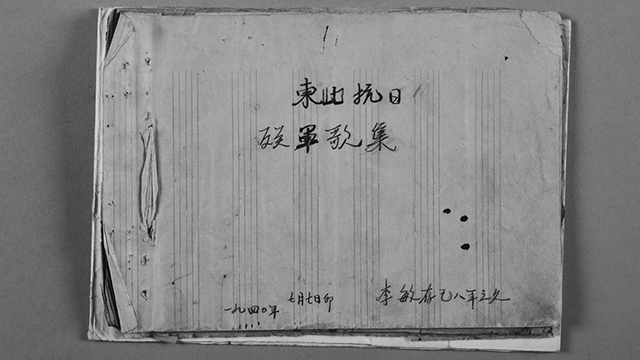 東北抗日
联軍歌集
一九四〇年 七月七日印
李敏存已八年之久